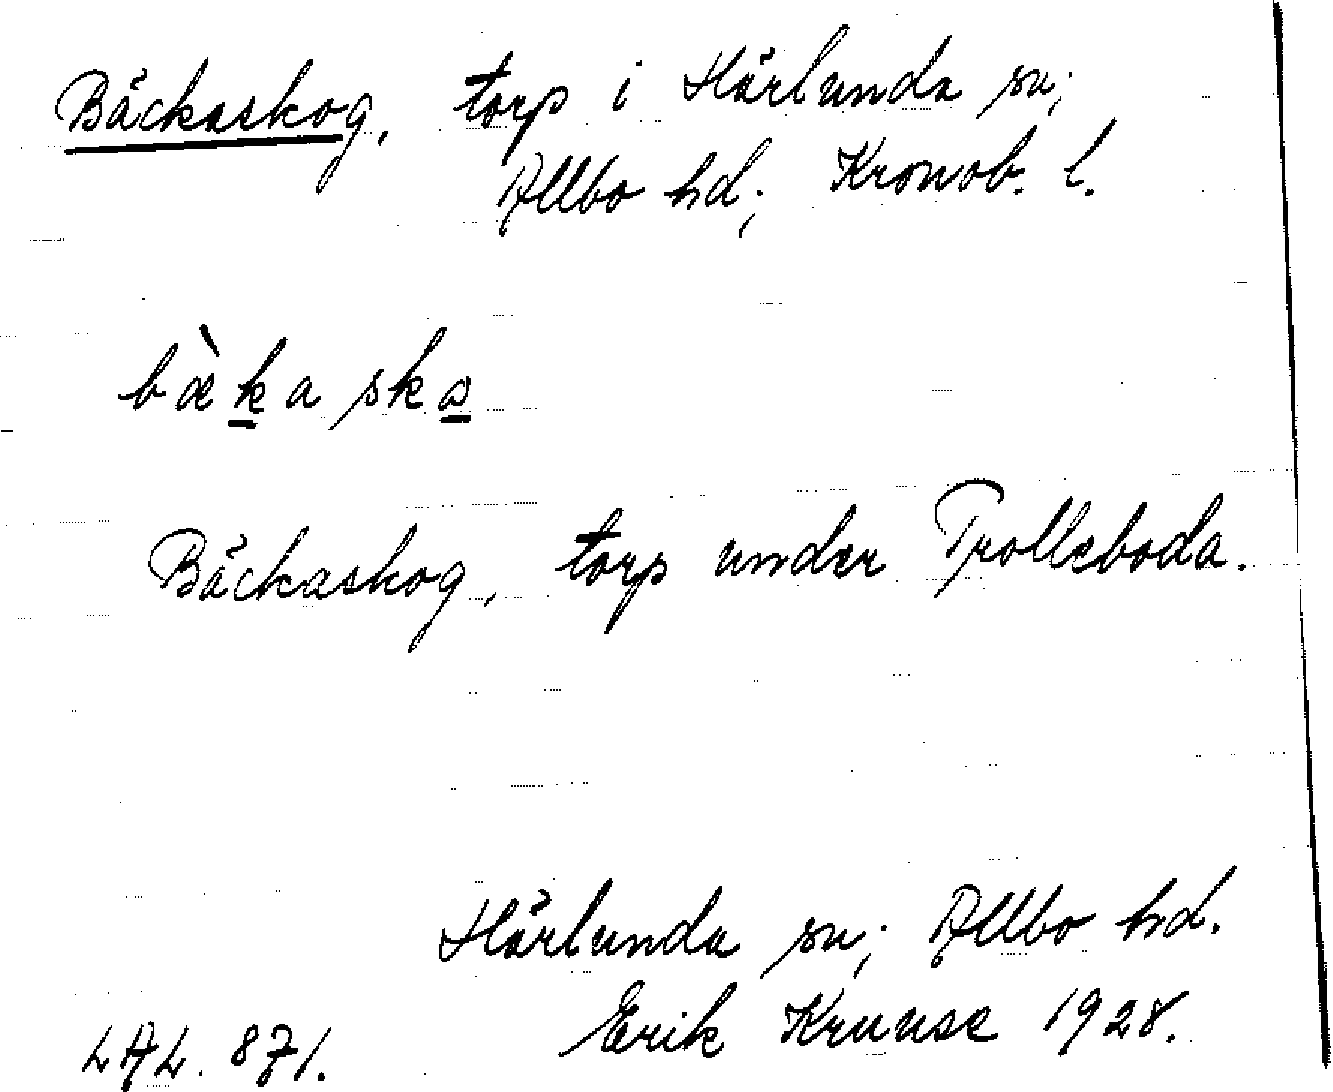 Bäckaskog, torp i Härlunda sn;
Allbo hd; Kronob. l.
bæ̀kaskɷ
Bäckaskog, torp under Trolleboda.
Härlunda sn; Allbo hd.
LAL. 871. Erik Kruuse 1928.